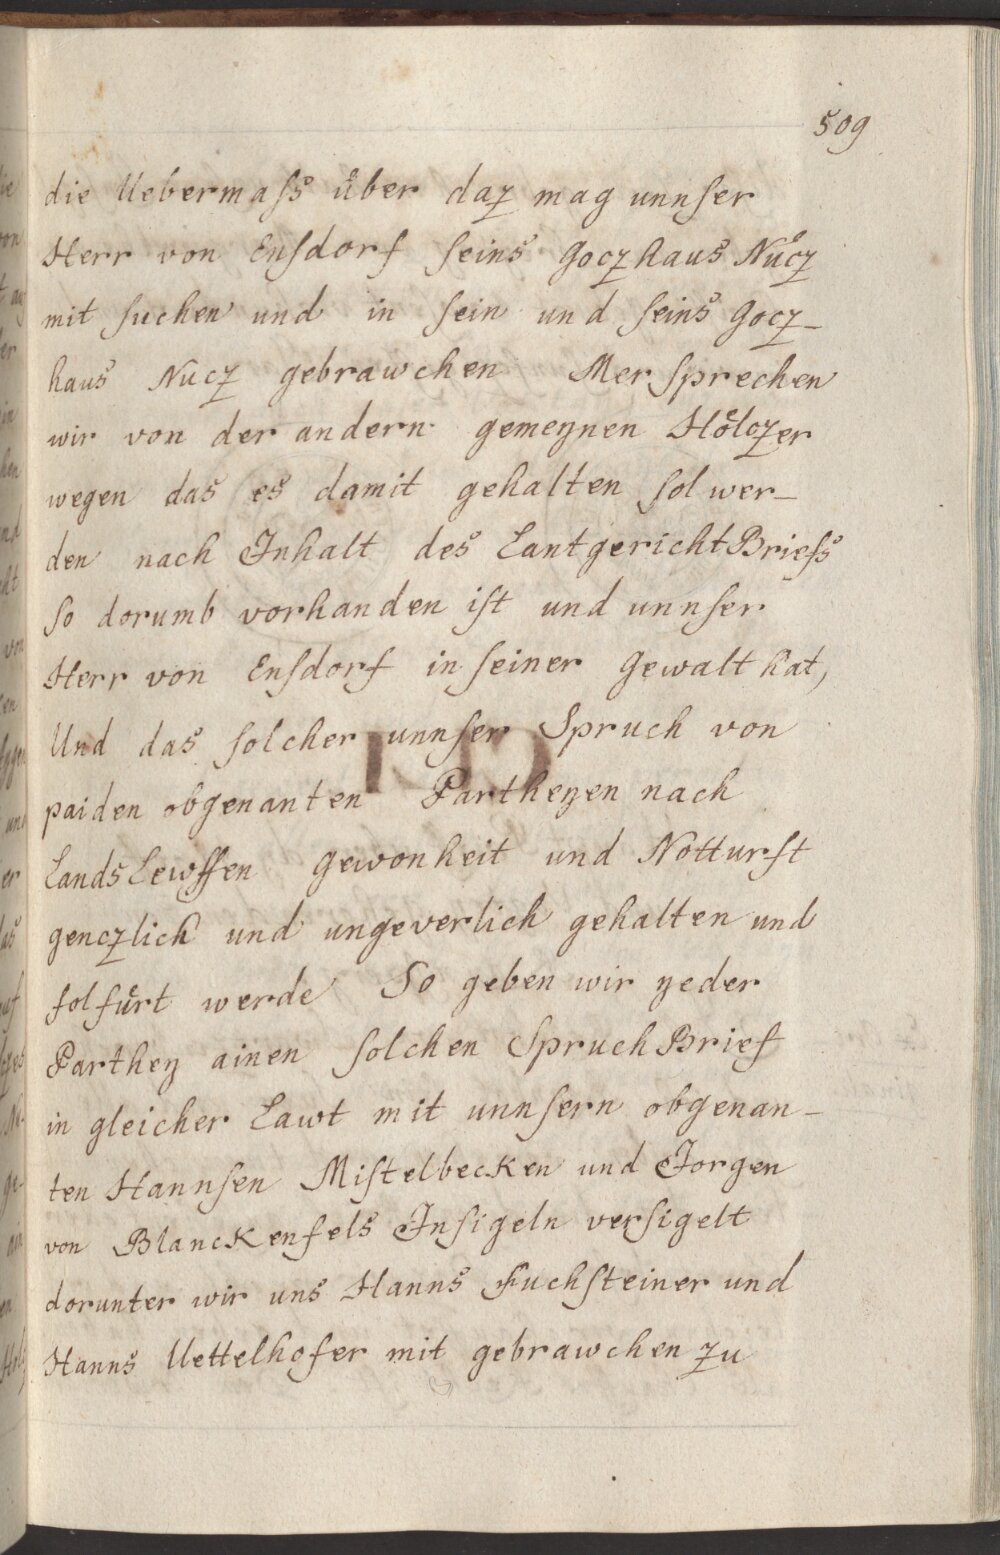 509
die Uebermaſs über daz mag unnſer
Herr von Enſdorf ſeins Goczhaus Nücz
mit ſuchen und in ſein und ſeins Gocz-
haus Nucz gebrawchen Mer ſprechen
wir von der andern gemeynen Hölczer
wegen das es damit gehalten ſol wer-
den nach Inhalt des Lantgericht Briefs
ſo dorumb vorhanden iſt und unnſer
Herr von Enſdorf in ſeiner Gewalt hat,
Und das ſolcher unnſer Spruch von
paiden obgenanten Partheyen nach
Lands Lewffen gewonheit und Notturft
genczlich und ungeverlich gehalten und
folfürt werde So geben wir yeder
Parthey ainen ſolchen Spruch Brief
in gleicher Lawt mit unnſern obgenan-
ten Hannſen Miſtelbecken und Jorgen
von Blanckenfels Inſigeln verſigelt
dorunter wir uns Hanns Fuchſteiner und
Hanns Uettelhofer mit gebrawchen zu